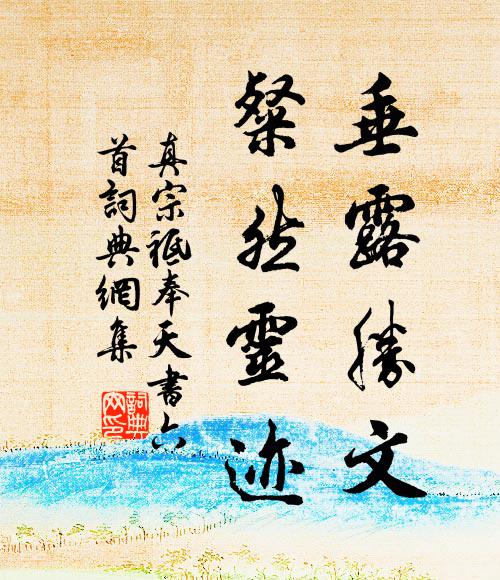 垂露勝文
粲然靈迹
真宗祗奉天書六
首詞典網集
詞典
网印